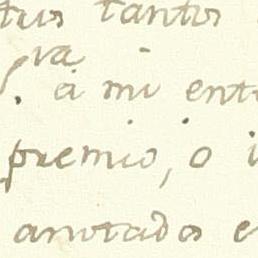 tus tantos
va
. a mi ent
premio, o i
anotados e